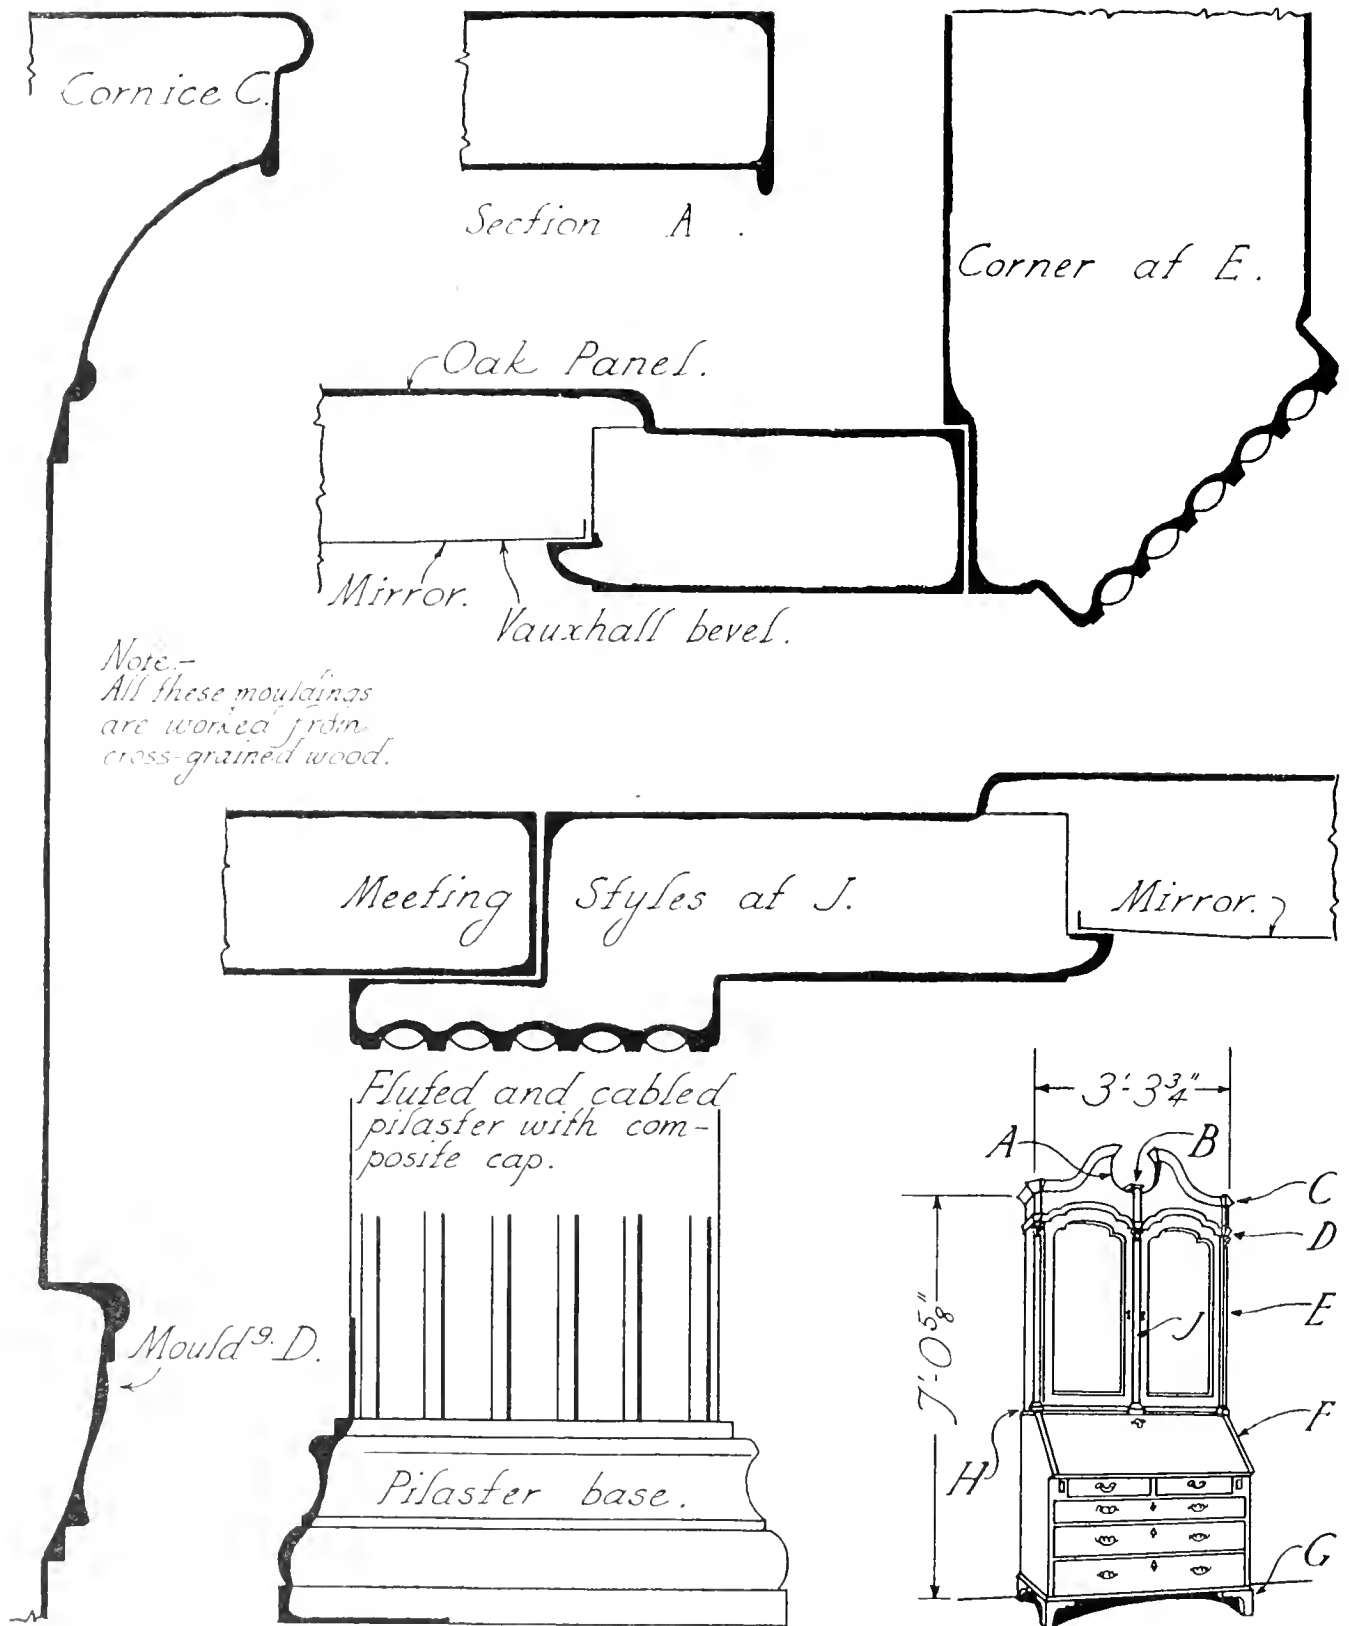 Cornice C.
Section A.
Corner at E.
Oak Panel.
Mirror.
Vauxhall bevel.
Note.-
All these mouldings
are worked from
cross-grained wood.
Meeting Styles at J.
Mirror.
Fluted and cabled
pilaster with com-
posite cap.
Mouldg. D.
Pilaster base.
3'-3 3/4"
A
B
C
D
7'-0 5/8"
E
J
F
H
G